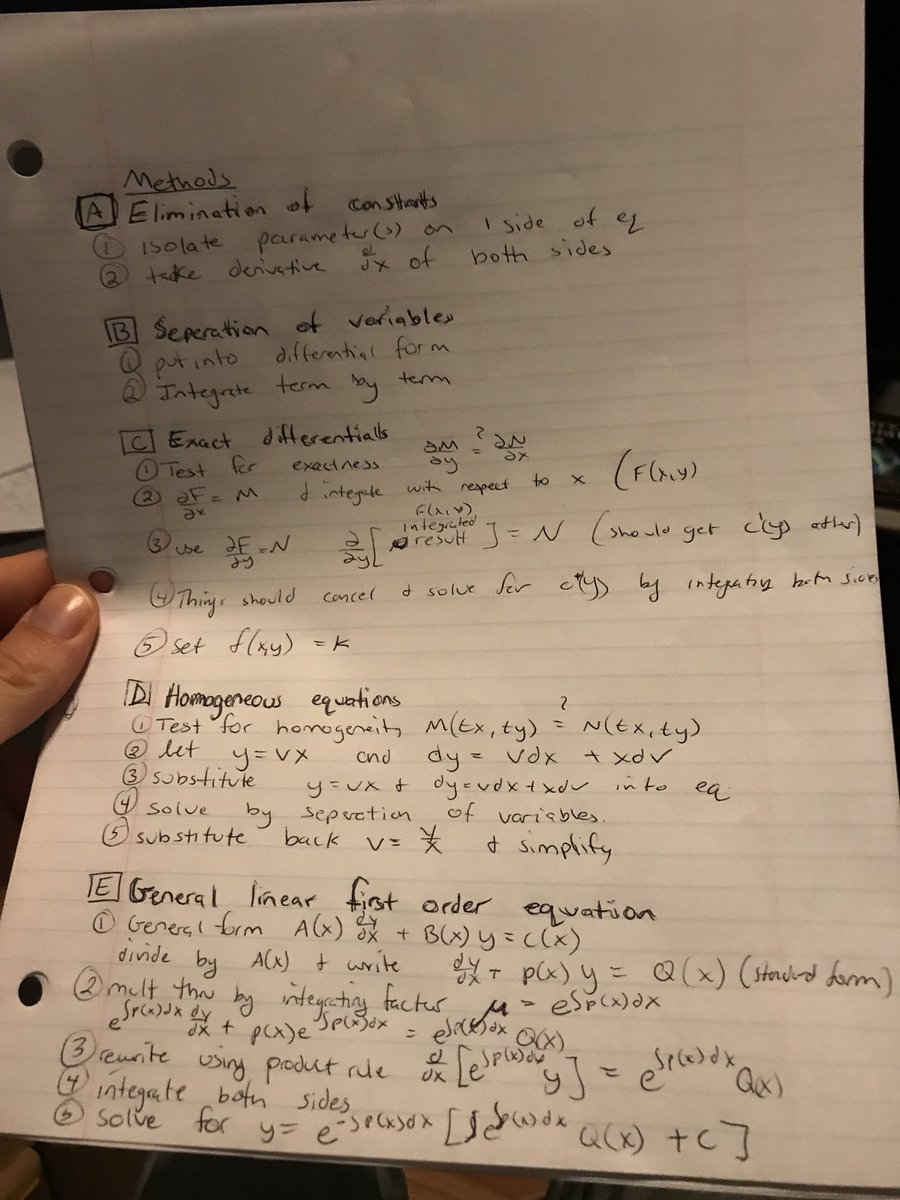 Methods
A Elimination of constants
① isolate parameter(s) on 1 side of eq
② take derivative d/dx of both sides
B Seperation of variables
① put into differential form
② Integrate term by term
C Exact differentials
① Test for exactness ∂M/∂y ?= ∂N/∂x
② ∂F/∂x = M & integrate with respect to x (F(x,y)
③ use ∂F/∂y = N ∂/∂y [F(x,y) integrated result] = N (should get c'(y) after)
④ Things should cancel & solve for c'(y) by integrating both sides
⑤ set f(x,y) = k
D Homogeneous equations
① Test for homogeneity M(tx, ty) ?= N(tx, ty)
② let y = vx and dy = vdx + xdv
③ substitute y = vx & dy = vdx + xdv into eq
④ solve by seperation of variables.
⑤ substitute back v = y/x & simplify
E General linear first order equation
① General form A(x) dy/dx + B(x) y = C(x)
divide by A(x) & write dy/dx + p(x) y = Q(x) (standard form)
② mult thru by integrating factor μ = e^∫p(x)dx
e^∫p(x)dx dy/dx + p(x)e^∫p(x)dx = e^∫p(x)dx Q(x)
③ rewrite using product rule d/dx [e^∫p(x)dx y] = e^∫p(x)dx Q(x)
④ integrate both sides
⑤ solve for y = e^-∫p(x)dx [∫e^∫p(x)dx Q(x) + C]